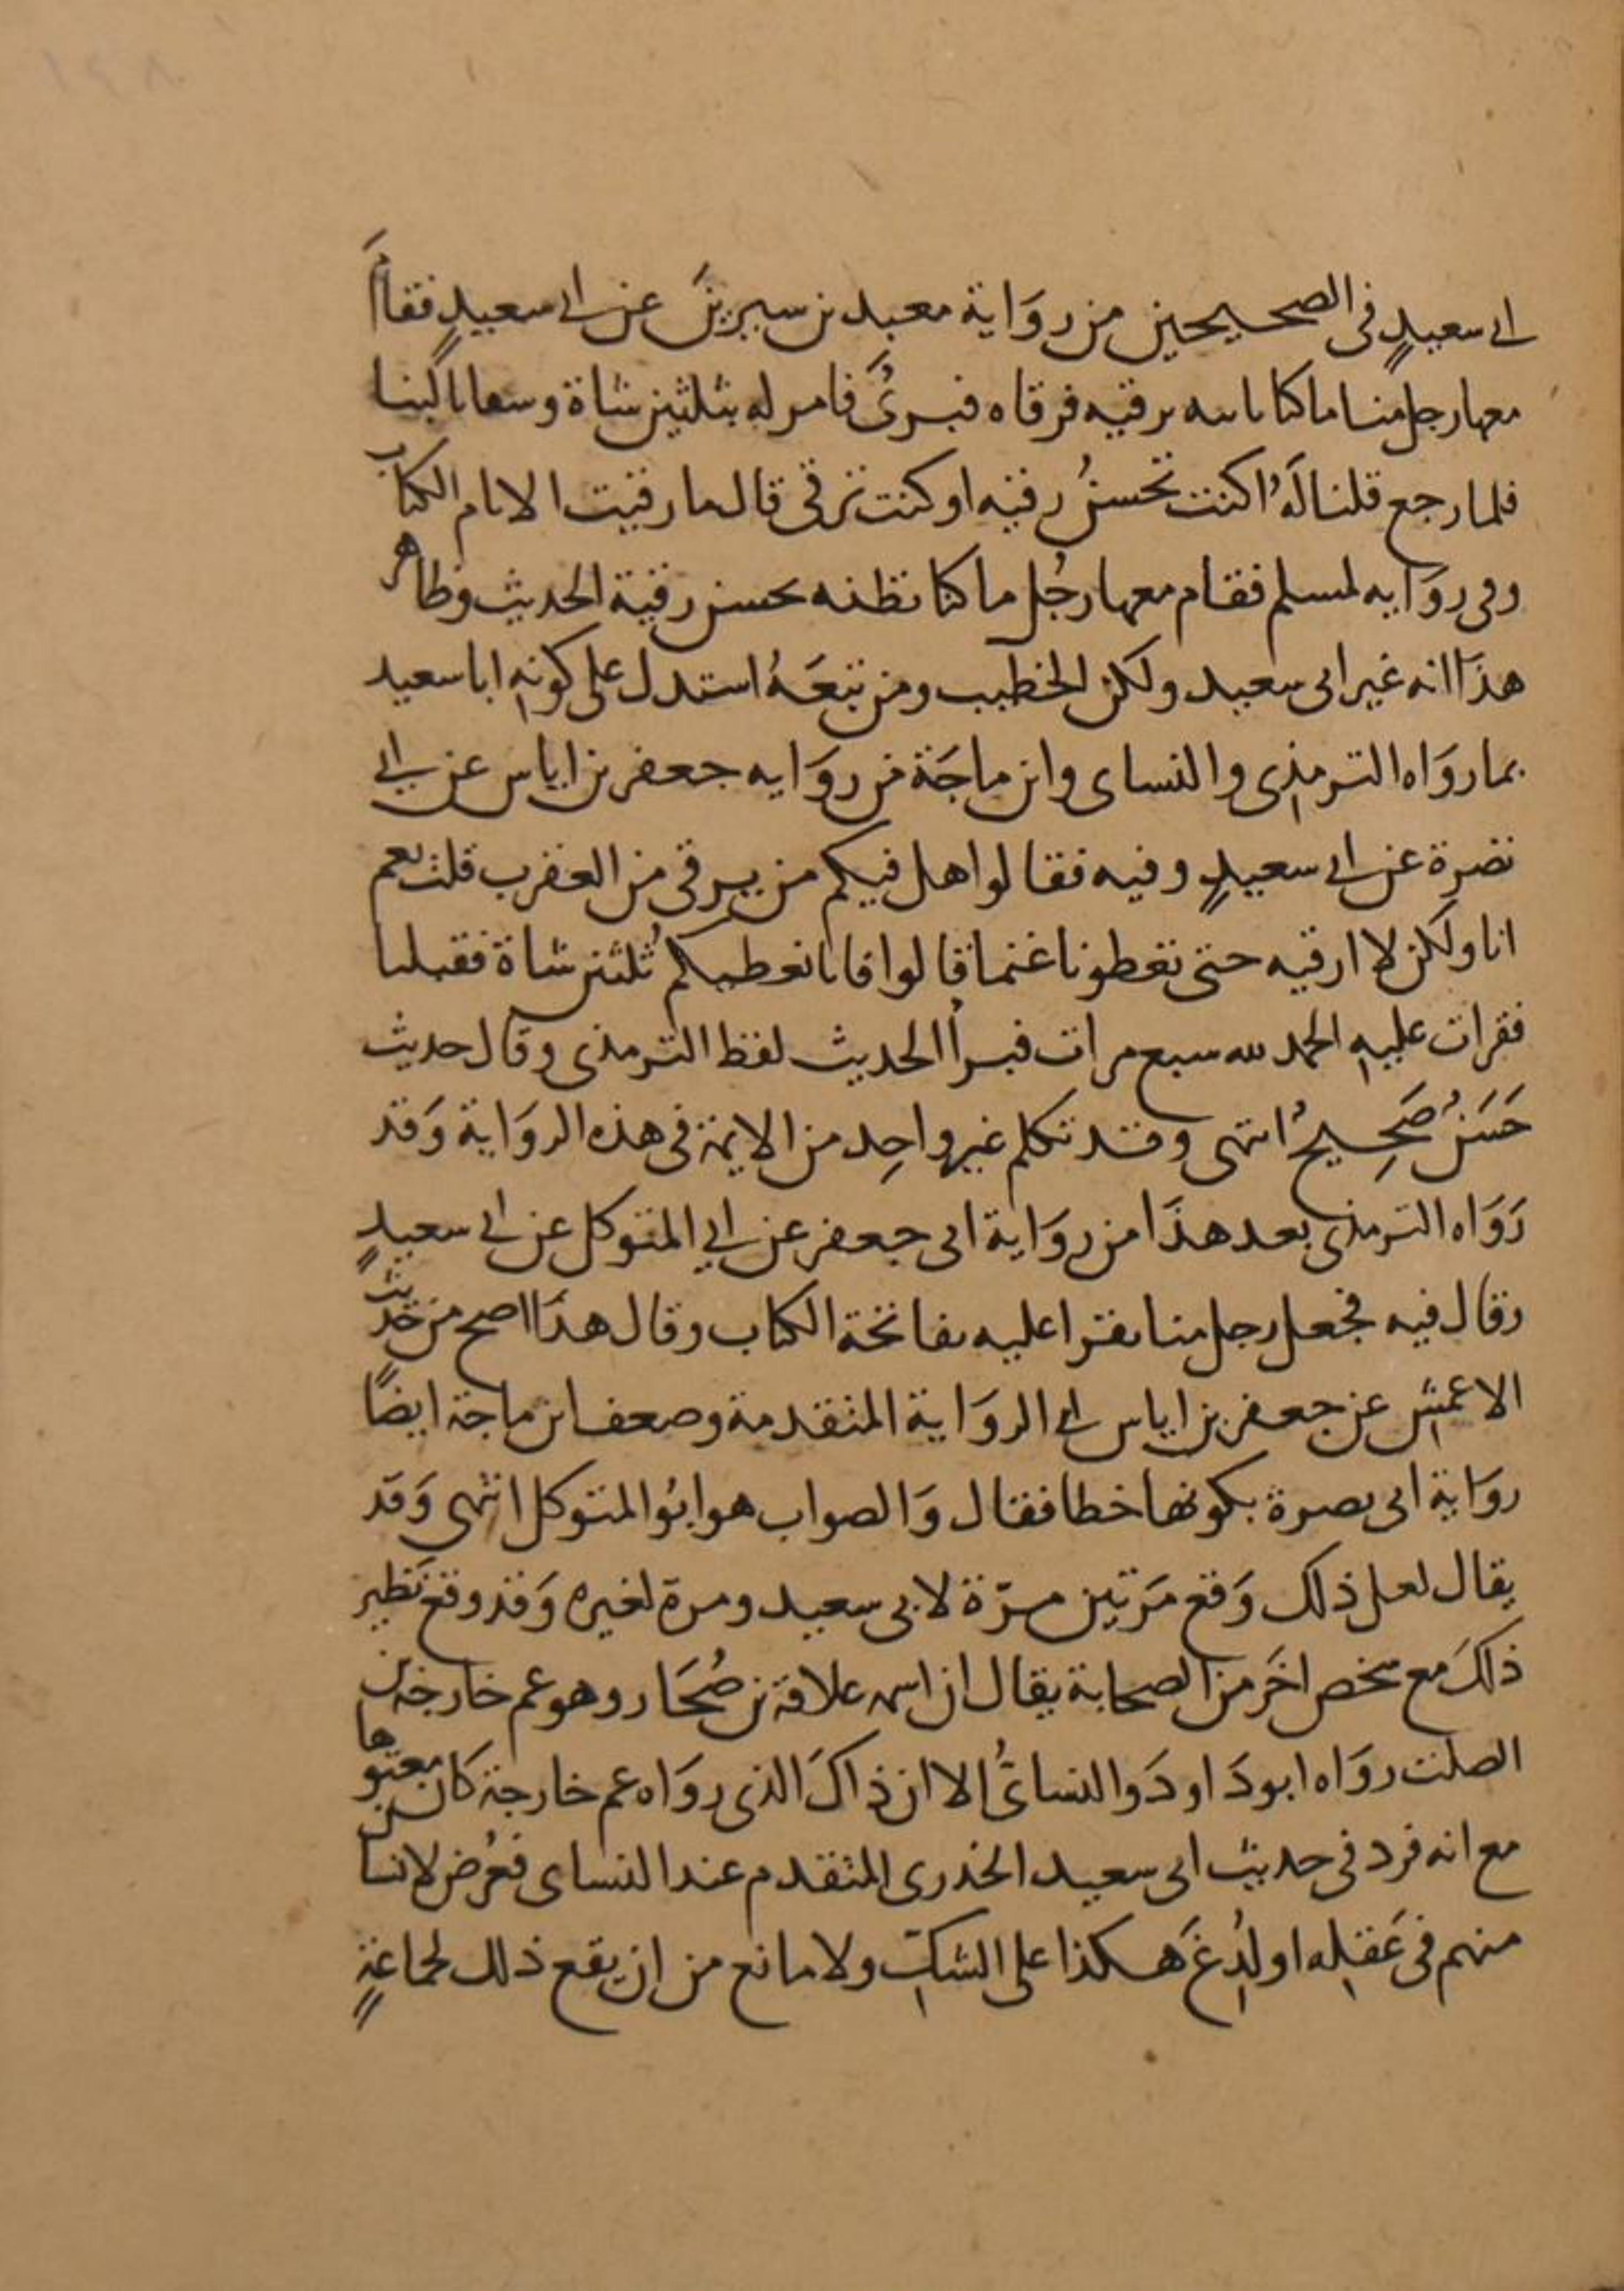 ابى سعيدٍ فى الصحيحين من روَاية معبد بن سيرينَ عن ابى سعيدٍ فقامَ
معها رجل منا ما كنا نابنه برقيه فرقاه فبرئَ فامر له بثلثين شاة وسقانا لبنا
فلما رجع قلنا لَهُ اكنت تحسنُ رقيه او كنت ترقى قال ما رقيت الا بام الكتاب
وفى روَايه لمسلم فقام معها رجُل ما كنا نظنه يحسن رقية الحديث وظاهر
هذَا انه غير ابى سعيد ولكن الخطيب ومن تبعَهُ استدل على كونهِ ابا سعيد
بما روَاه الترمذى والنساى وابن ماجَة من روَايه جعفر بن اياس عن ابى
نضرة عن ابى سعيدٍ وفيه فقالوا هل فيكم من يرقى من العقرب قلت نعم
انا ولكن لا ارقيه حتى تعطونا غنما قالوا فانا نعطيكم ثلثين شاة فقبلنا
فقرات عليهِ الحمد لله سبع مرات فبرأ الحديث لفظ الترمذى وقال حديث
حَسَنٌ صَحِيحٌ انتهى وقد تكلم غير واحِد من الايمة فى هذه الروَاية وَقد
رَوَاه الترمذى بعد هذَا من روَاية ابى جعفر عن ابى المتوكل عن ابى سعيدٍ
وقال فيه فجعل رجل منا يقرا عليه بفاتحة الكتاب وقال هذَا اصح من حَديث
الاعمش عن جعفر بن اياس اى الروَاية المتقدمة وضعف ابن ماجة ايضًا
روَاية ابى نصرة بكونها خطا فقال وَالصواب هو ابُو المتوكل انتهى وَقد
يقال لعل ذلك وَقع مَرتين مرّة لابى سعيد ومرة لغيره وَقد وقع نَظير
ذلكَ مع شخص اخَر من الصحابة يقال ان اسمه علاقة بن صُحَار وهو عم خارجة بن
الصلت روَاه ابو دَاود وَالنسائُ الا ان ذاكَ الذى روَاه عم خارجة كان معتوها
مع انه فرد فى حديث ابى سعيد الخدرى المتقدم عند النساى فعُرض لانسان
منهم فى عَقلِه او لُدِغَ هكذا على الشكِ ولا مانع من ان يقع ذلك لجماعةٍ